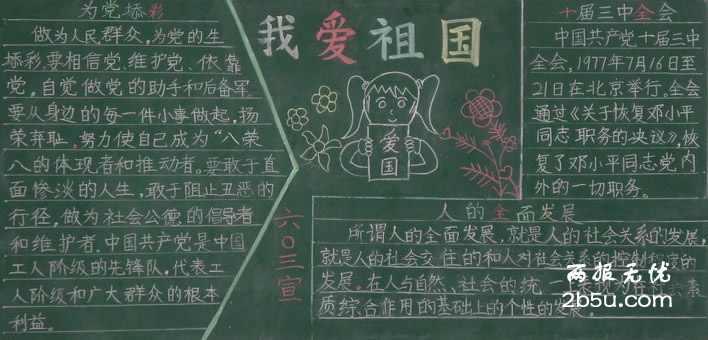 为党添彩
做为人民群众，为党的生
添彩，要相信党、维护党、依靠
党，自觉做党的助手和后备军。
要从身边的每一件小事做起，扬
荣弃耻，努力使自己成为“八荣
八的体现者和推动者。要敢于直
面惨淡的人生，敢于阻止丑恶的
行径，做为社会公德的倡导者
和维护者。中国共产党是中国
工人阶级的先锋队，代表工
人阶级和广大群众的根本
利益。
我爱祖国
爱国
六〇三宣
十届三中全会
中国共产党十届三中
全会，1977年7月16日至
21日在北京举行。全会
通过《关于恢复邓小平
同志职务的决议》，恢
复了邓小平同志党内
外的一切职务。
人的全面发展
所谓人的全面发展，就是人的社会关系的发展，
就是人的社会交往的和人对社会关系的控制程度的
发展。在人与自然、社会的统一
质综合作用的基础上的个性的发展。
两报无忧
2b5u.com